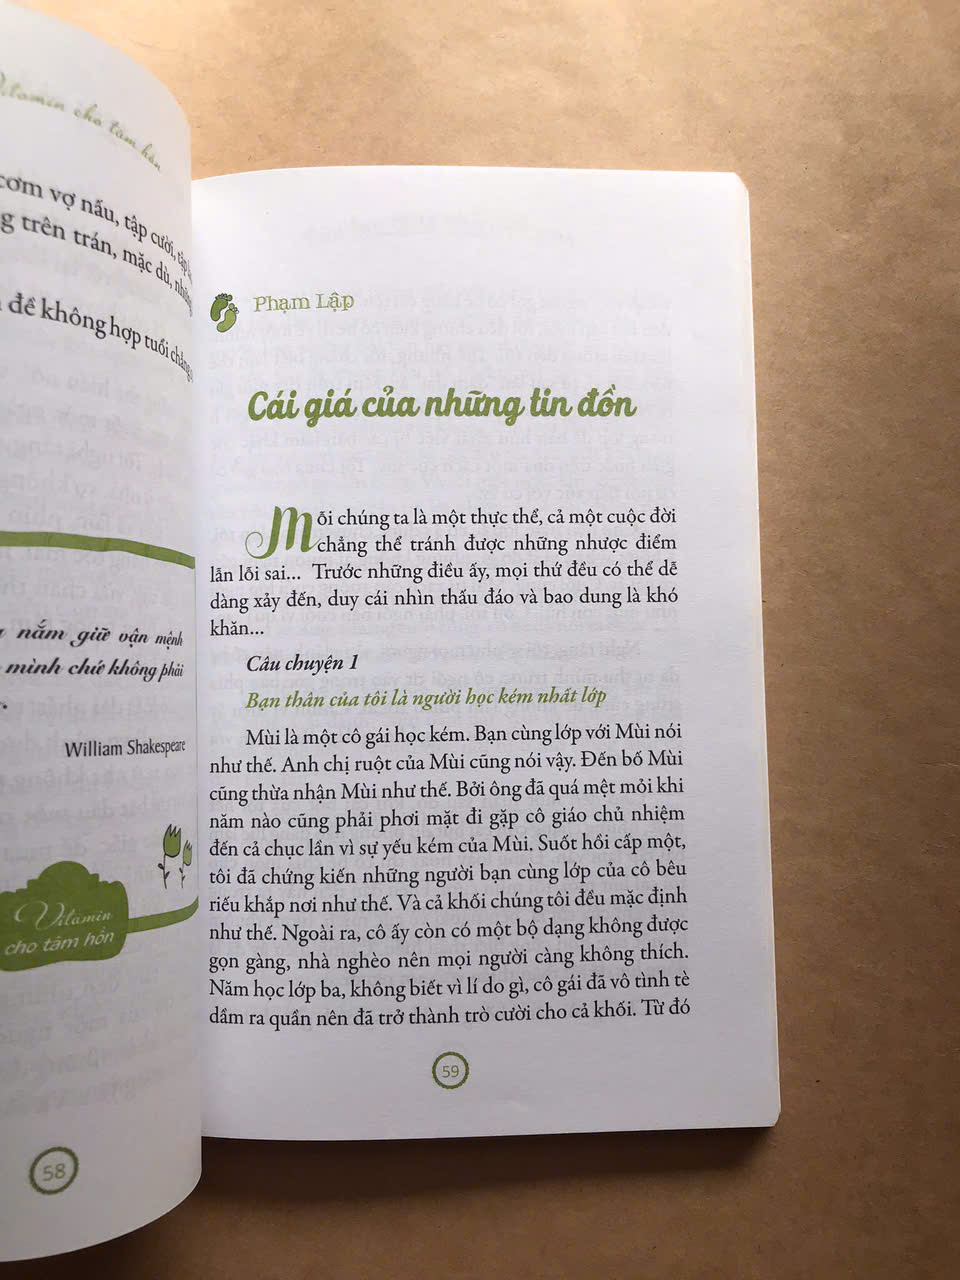 Vitamin cho tâm hồn
cơm vợ nấu, tập cười, tập
trên trán, mặc dù, những
đề không hợp tuổi chẳng
nắm giữ vận mệnh
mình chứ không phải
William Shakespeare
Vitamin
cho tâm hồn
58
Phạm Lập
Cái giá của những tin đồn
Mỗi chúng ta là một thực thể, cả một cuộc đời
chẳng thể tránh được những nhược điểm
lẫn lỗi sai... Trước những điều ấy, mọi thứ đều có thể dễ
dàng xảy đến, duy cái nhìn thấu đáo và bao dung là khó
khăn...
Câu chuyện 1
Bạn thân của tôi là người học kém nhất lớp
Mùi là một cô gái học kém. Bạn cùng lớp với Mùi nói
như thế. Anh chị ruột của Mùi cũng nói vậy. Đến bố Mùi
cũng thừa nhận Mùi như thế. Bởi ông đã quá mệt mỏi khi
năm nào cũng phải phơi mặt đi gặp cô giáo chủ nhiệm
đến cả chục lần vì sự yếu kém của Mùi. Suốt hồi cấp một,
tôi đã chứng kiến những người bạn cùng lớp của cô bêu
riếu khắp nơi như thế. Và cả khối chúng tôi đều mặc định
như thế. Ngoài ra, cô ấy còn có một bộ dạng không được
gọn gàng, nhà nghèo nên mọi người càng không thích.
Năm học lớp ba, không biết vì lí do gì, cô gái đã vô tình tè
dầm ra quần nên đã trở thành trò cười cho cả khối. Từ đó
59